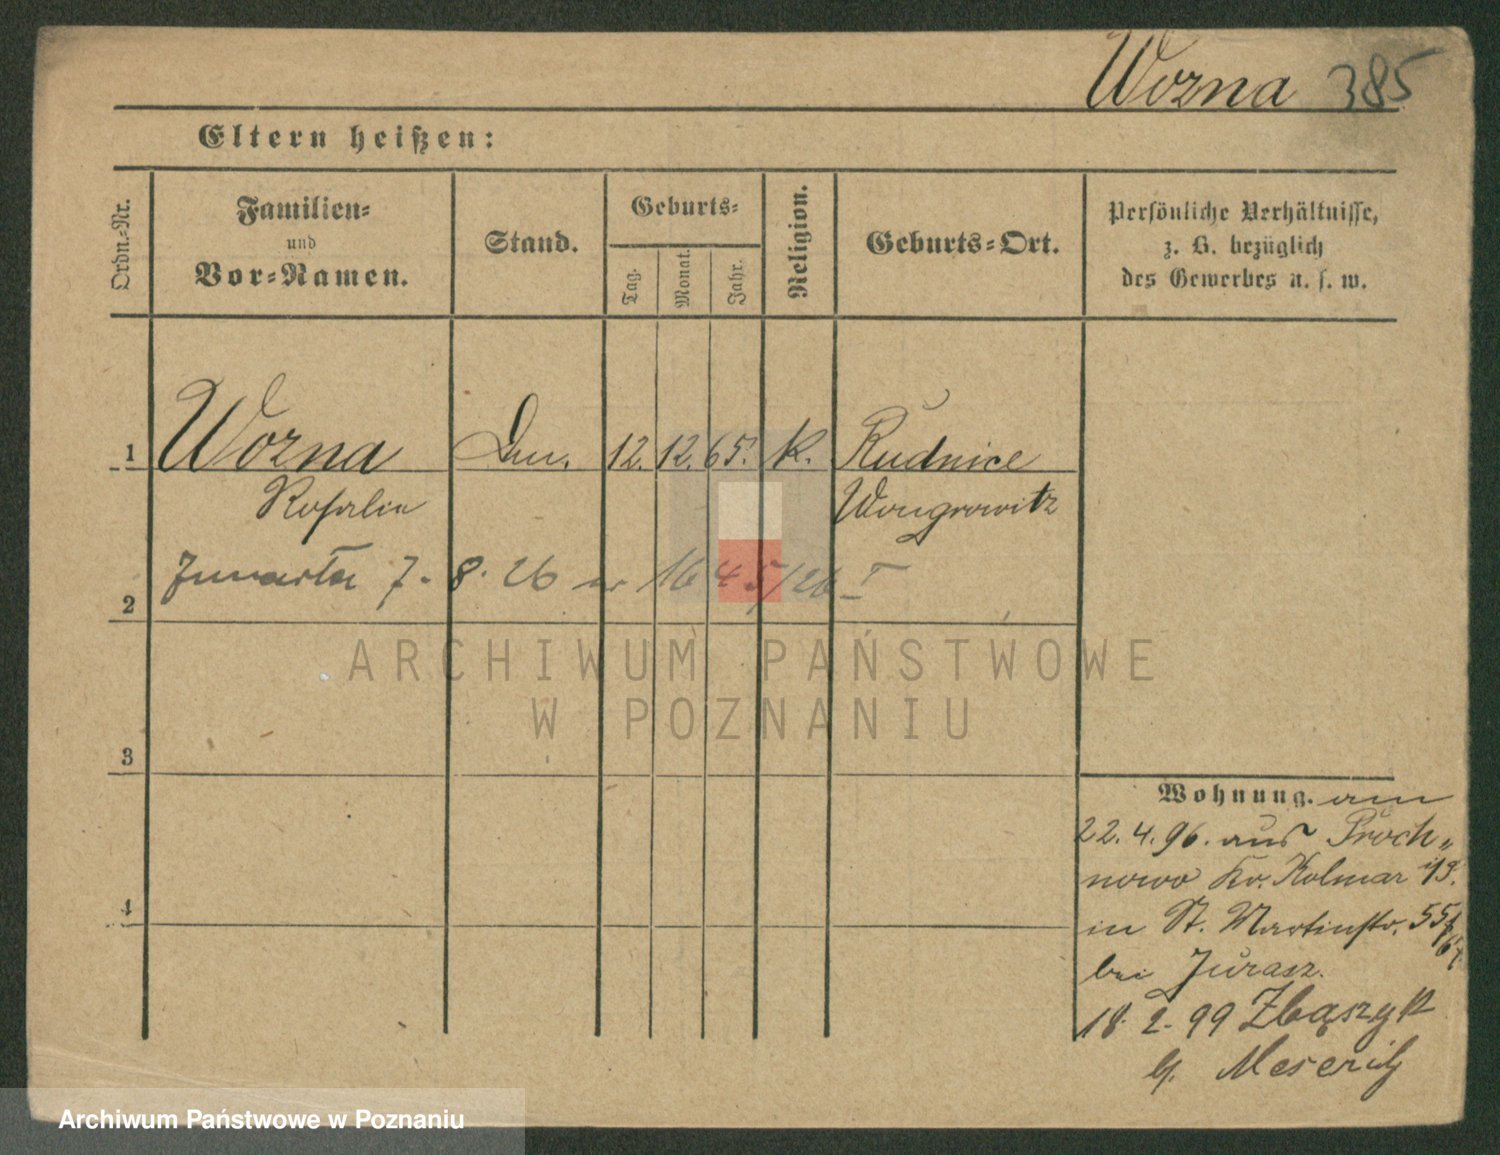 Wozna 385
Eltern heißen:
Ordn.-Nr.
Familien-
und
Vor-Namen.
Stand.
Geburts-
Tag.
Monat.
Jahr.
Religion.
Geburts-Ort.
Persönliche Verhältnisse,
z. B. bezüglich
des Gewerbes u. s. w.
1 Wozna 12. 12. 65. K. Rudnice
Rosalie Wongrowitz
Zmarła 7. 8. 26 nr 1645/26
2
3
4
Wohnung. am
22. 4. 96. aus Proch-
nowo Kr. Kolmar
in St. Martinstr. 55/
bei Jurasz.
18. 2. 99 Zbąszyń
Meseritz
ARCHIWUM PAŃSTWOWE
W POZNANIU
Archiwum Państwowe w Poznaniu